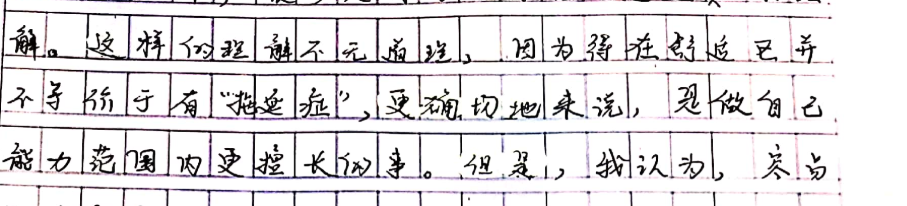 解。这样的理解不无道理，因为得在舒适区并
不等价于有“拖延症”，更确切地来说，是做自己
能力范围内更擅长的事。但是，我认为，容与